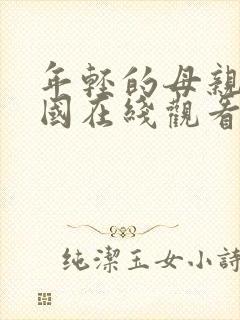 年轻的母親
國在綫觀看
纯潔玉女小詩